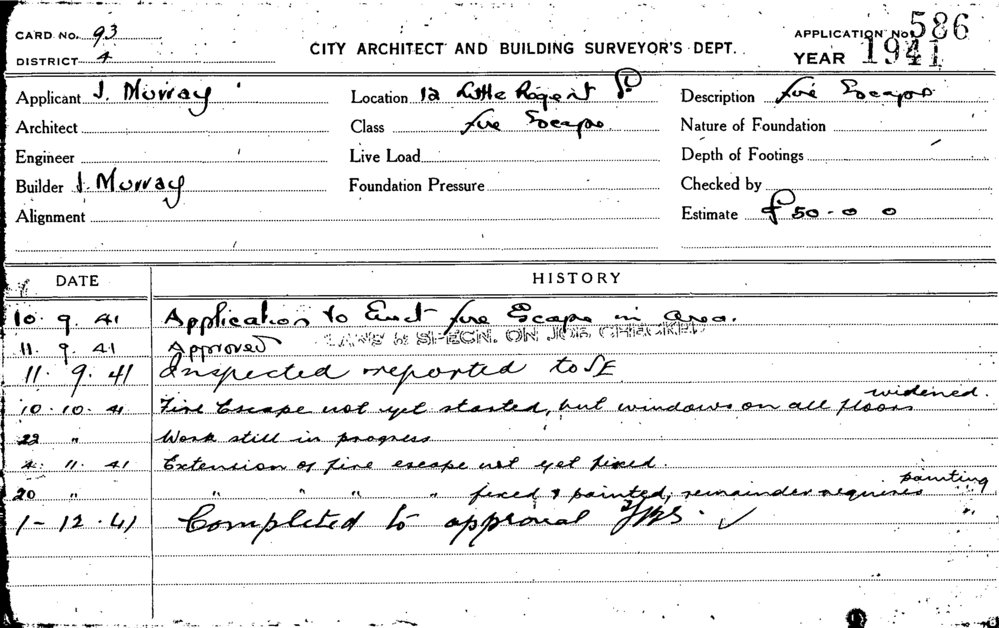 CARD No. 93
DISTRICT 4
CITY ARCHITECT AND BUILDING SURVEYOR'S DEPT.
APPLICATION No. 586
YEAR 1941
Applicant J. Murray
Location 12 Little Regent P.
Description fire Escapes
Architect
Class fire Escapes
Nature of Foundation
Engineer
Live Load
Depth of Footings
Builder J. Murray
Foundation Pressure
Checked by
Alignment
Estimate £50-0 0
DATE HISTORY
10. 9. 41 Application to Erect fire Escape in area.
11. 9. 41 Approved PLANS & SPECN. ON JOB CHECKED
11. 9. 41 Inspected reported to SE
10. 10. 41 Fire Escape not yet started, but windows on all floors widened.
22 " Work still in progress
4. 11. 41 Extension of fire escape not yet fixed.
20 " " " " " fixed & painted, remainder requires painting
1-12.41 Completed to approval